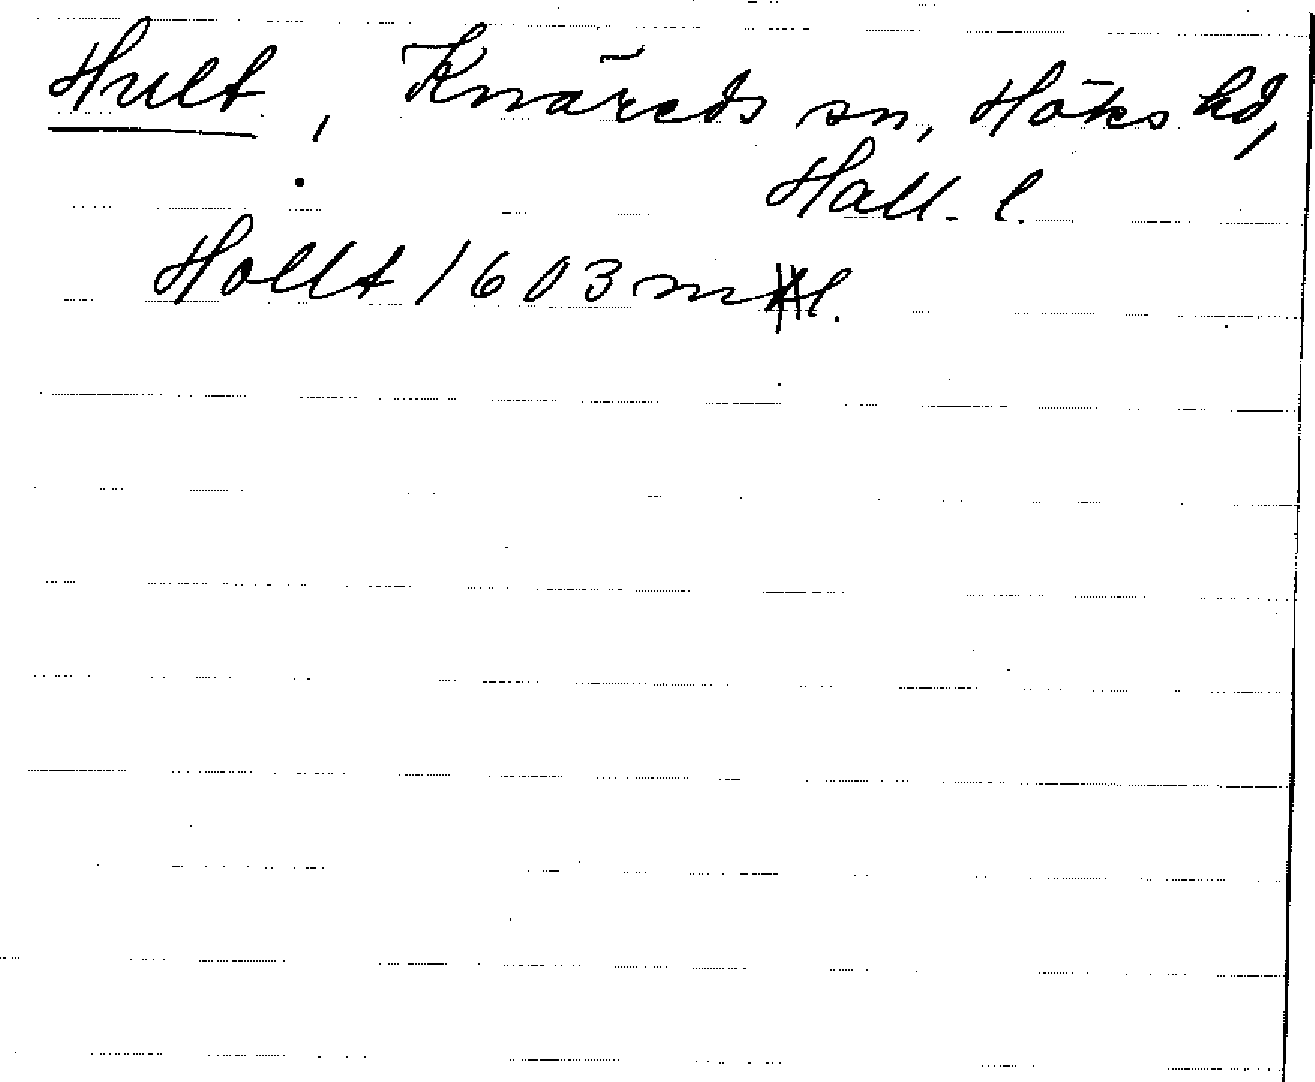 Hult, Knäreds sn, Höks hd,
Hall. l.
Hollt 1603 mtl.